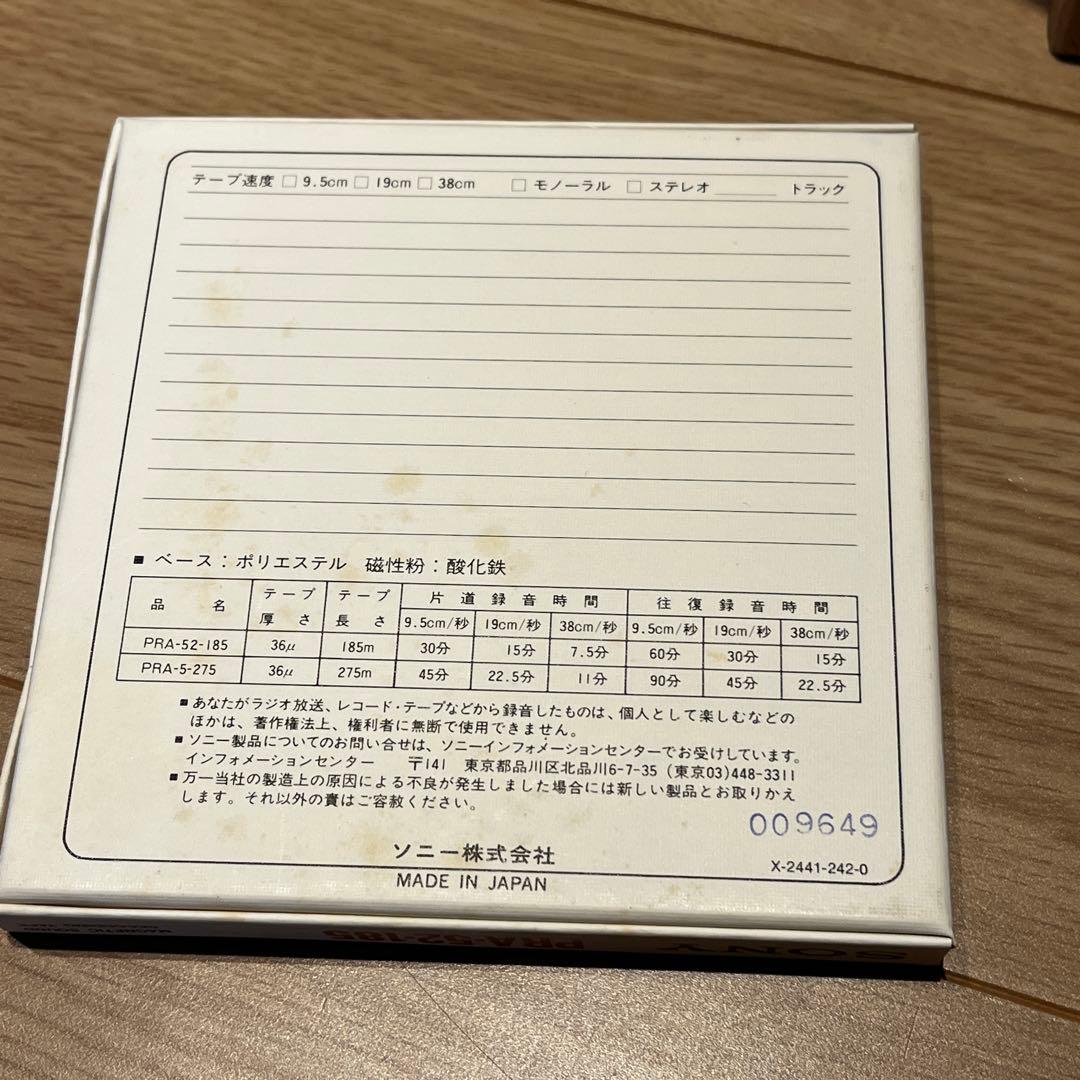 テープ速度 □ 9.5cm □ 19cm □ 38cm □ モノーラル □ ステレオ トラック
■ ベース：ポリエステル 磁性粉：酸化鉄
品名 テープ厚さ テープ長さ 片道録音時間 往復録音時間
9.5cm/秒 19cm/秒 38cm/秒 9.5cm/秒 19cm/秒 38cm/秒
PRA-52-185 36μ 185m 30分 15分 7.5分 60分 30分 15分
PRA-5-275 36μ 275m 45分 22.5分 11分 90分 45分 22.5分
■ あなたがラジオ放送、レコード・テープなどから録音したものは、個人として楽しむなどの
ほかは、著作権法上、権利者に無断で使用できません。
■ ソニー製品についてのお問い合せは、ソニーインフォメーションセンターでお受けしています。
インフォメーションセンター 〒141 東京都品川区北品川6-7-35 (東京03)448-3311
■ 万一当社の製造上の原因による不良が発生しました場合には新しい製品とお取りかえ
します。それ以外の責はご容赦ください。
009649
ソニー株式会社
X-2441-242-0
MADE IN JAPAN
SONY
PRA-52-185
MAGNETIC SOUND